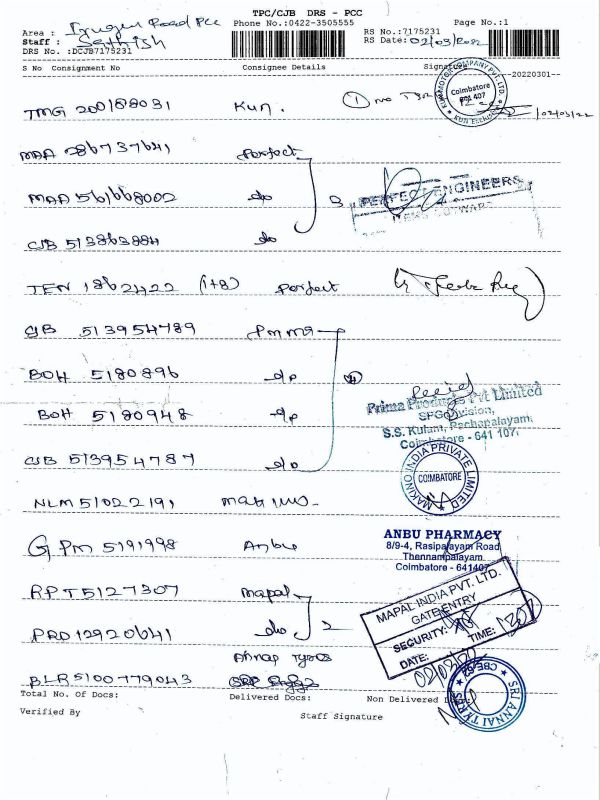 TPC/CJB DRS - PCC
Area : Irugur Road PCC Phone No.:0422-3505555 Page No.:1
Staff : Sathish RS No.:7175231
DRS No.:DCJB7175231 RS Date: 02/03/2022
S No Consignment No Consignee Details Signature
--20220301--
TMG 200188031 Kun. 02/03/22
KUN MOTOR COMPANY PVT. LTD.
Coimbatore
641 407
MAA 286737641 Perfect
MAA 561668002 do 3 PERFECT ENGINEERS
CJB 513863884 do
TEN 1862422 (1+8) perfect
CJB 513954789 Prima
BOH 5180896 do 4
BOH 5180948 do
Prima Products Pvt Limited
SFG Division,
S.S. Kulam, Pachapalayam,
Coimbatore - 641 107.
CJB 513954787 do
MAKINO INDIA PRIVATE LIMITED
COIMBATORE
NLM 51022191
GPM 5191998 Anbu
ANBU PHARMACY
8/9-4, Rasipalayam Road
Thennampalayam
Coimbatore - 641407
RPT 5127307 Mapal
PRD 12920641 do 2
MAPAL INDIA PVT. LTD.
GATE ENTRY
SECURITY:
DATE: 02/03/22 TIME:
Annai Tyres
BLR 5100779043
SRI ANNAI TY
CBE-62
Total No. Of Docs: Delivered Docs: Non Delivered Docs:
Verified By Staff Signature